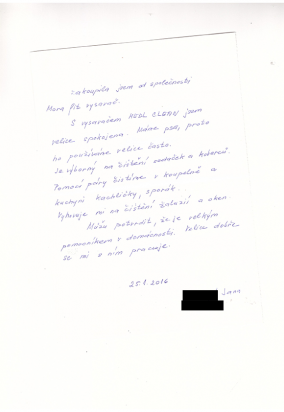 Zakoupila jsem od společnosti
Mora fit vysavač.
S vysavačem REAL CLEAN jsem
velice spokojena. Máme psa, proto
ho používáme velice často.
Je výborný na čištění sedaček a koberců.
Pomocí páry čistíme v koupelně a
kuchyni kachličky, sporák.
Vyhovuje mi na čištění žaluzií a oken
Můžu potvrdit, že je velkým
pomocníkem v domácnosti. Velice dobře
se mi s ním pracuje.
25.1.2016
Jana